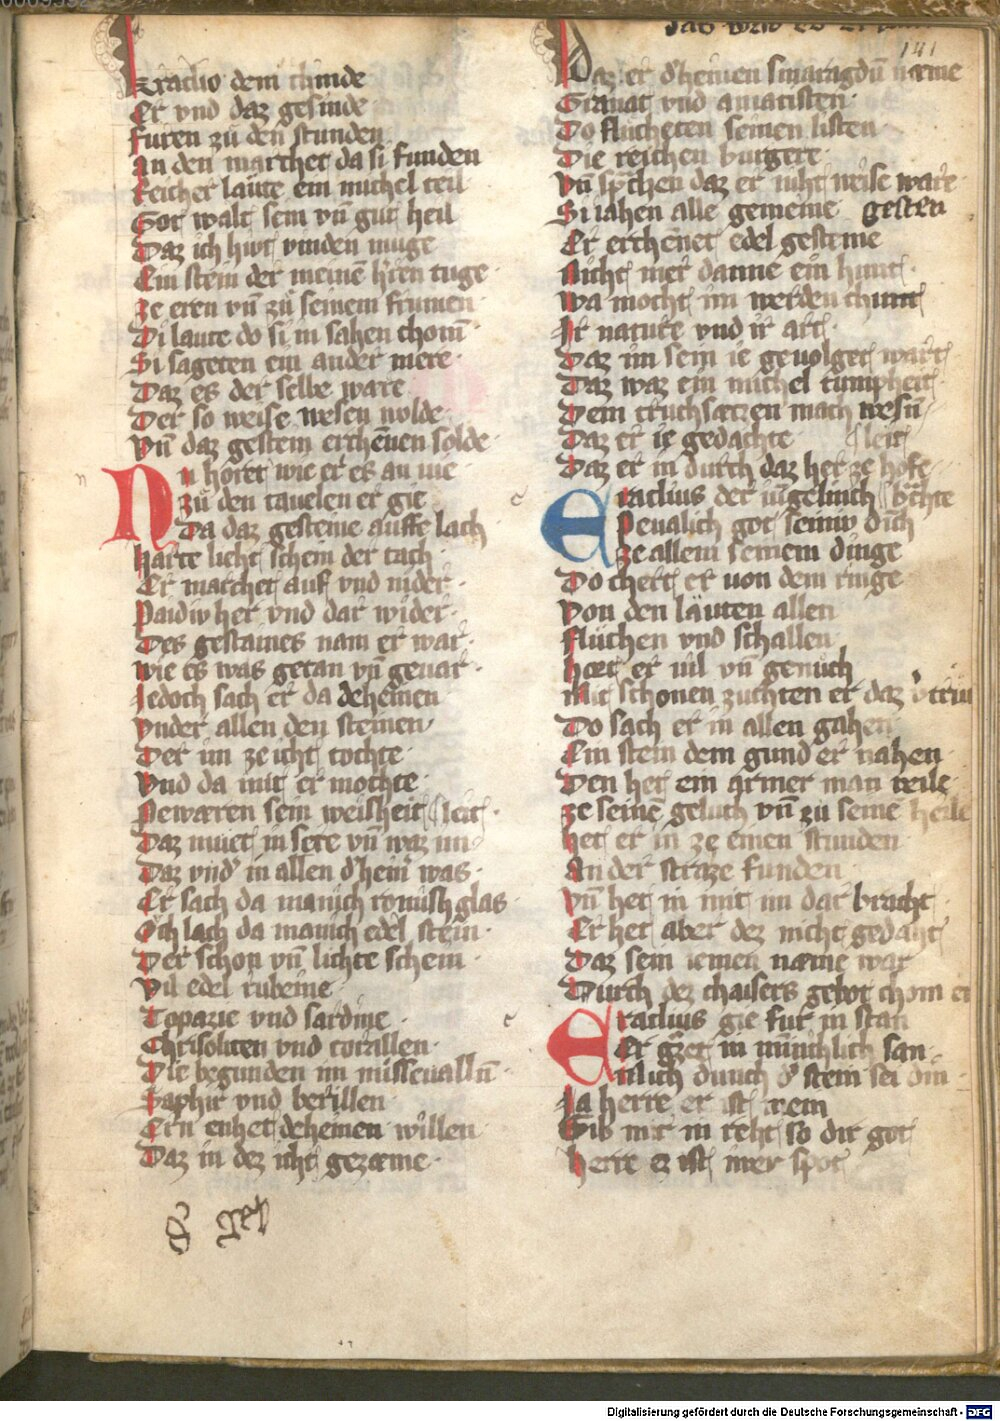 Eraclio dem chinde
Er vnd daz gesinde
furen zu den stunden
An den marchet da si funden
Reicher laute ein michel teil
Got walt sein vn̄ gut heil
Daz ich hiut vinden muge
Ein stein der meinē h'ren tuge
ze eren vn̄ zu seinem frumen
Di laute do si in sahen chom̄
Si sageten ein ander mere
Daz es der selbe ware
Der so weise wesen wolde
Vn̄ daz gestein erchēnen solde
Nu horet wie er es an vie
zu den tauelen er gie
Da daz gesteine auffe lach
harte licht schein der tach
Er marchet auf vnd nider
Paidiv her vnd dar wider
Des gestaines nam er war
wie es was getan vn̄ geuar
Jedoch sach er da deheinen
vnder allen den steinen
Der im ze icht tochte
Vnd da mit er mochte
Pewæren sein weisheit leit
Daz muiet in sere vn̄ waz im
Daz vnd' in allen d'hein' was
Er sach da manich romisch glas
Och lach da manich edel stein
Der schon vn̄ lichte schein
Vil edel rubeine
Topazie vnd sardine
Chrisoliten vnd corallen
Die begunden im misseuallen̄
Saphir vnd berillen
Ern enhet deheinen willen
Daz in dez icht gezæme
Daz er d'heinen smaragdū næme
Granat vnd amatisten
Do flucheten seinen listen
Die reichen burgere
Vn̄ sp̄chen daz er niht weise ware
Si iahen alle gemeine gestein
Er erchēnet edel gesteine
Nicht mer danne ein hunt
wa mocht im werden chunt
Ir nature vnd ir art
Daz im sein ie geuolget wart
Daz waz ein michel tumpheit
Dem truchsætzen mach wesen̄
Daz er ie gedachte leit
Daz er in durch daz her ze hofe
Eraclius der iūgelinch b̄chte
Peualich got seiniv dīch
ze allem seinem dinge
Do chert er von dem ringe
Von den läuten allen
fluchen vnd schallen
hört er vil vn̄ genuch
Mit schonen zuchten er daz v'trūc
Do sach er in allen gahen
Ein stein dem gund er nahen
Den het ein armer man veile
ze seinē geluch vn̄ zu seinē heile
het er in ze einen stunden
An der straze funden
vn̄ het in mit im dar bracht
Er het aber dez nicht gedaht
Daz sein iemen næme war
Durch dez chaisers gebot chom er
Eraclius gie fur in stan
Er ḡzet in min̄ichlich san